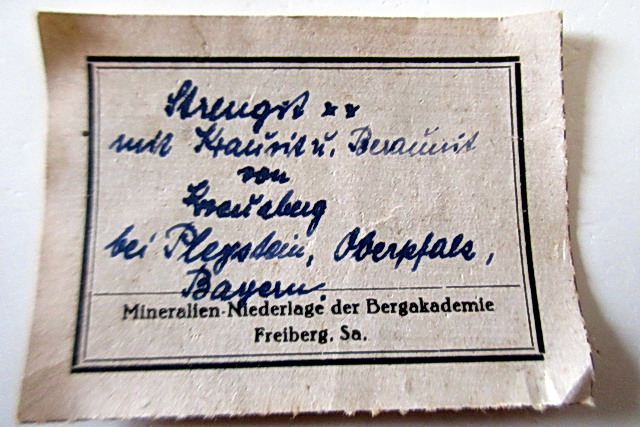 Strengit xx
mit Krausit u. Beraunit
von
Kreuzberg
bei Pleystein, Oberpfalz,
Bayern.
Mineralien-Niederlage der Bergakademie
Freiberg, Sa.